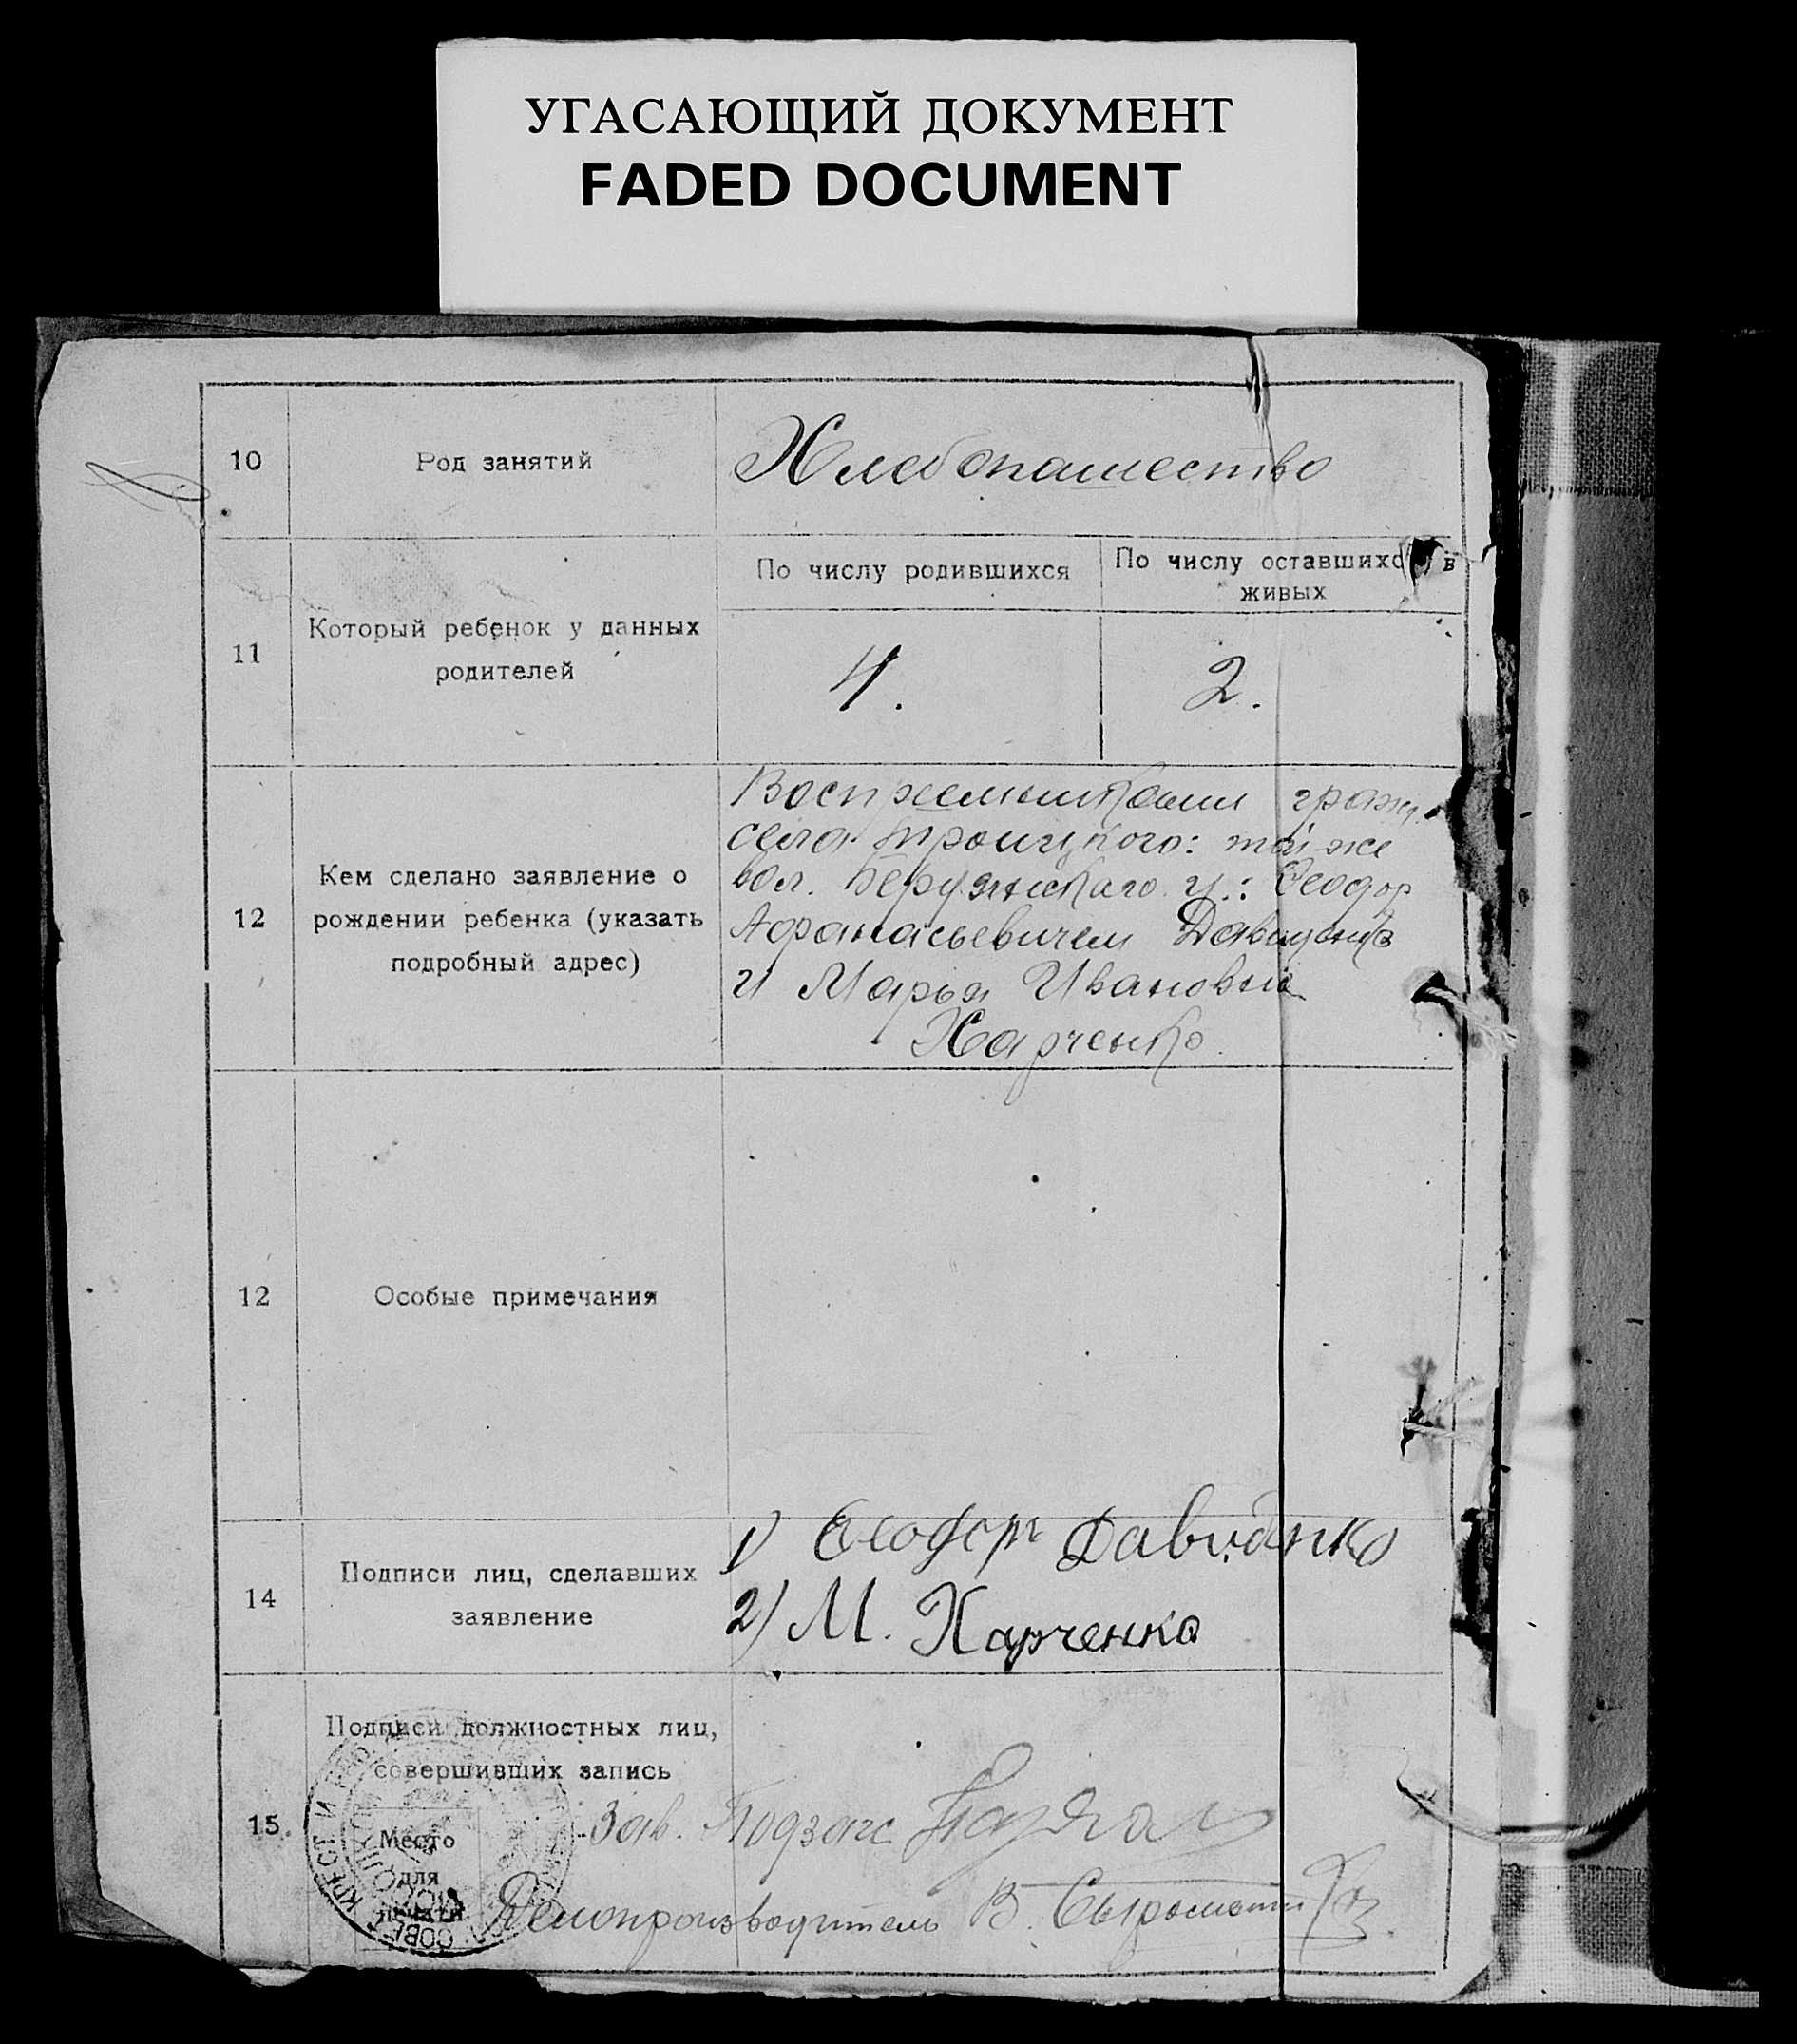 УГАСАЮЩИЙ ДОКУМЕНТ
FADED DOCUMENT
10
Род занятий
Хлебопашество
11
Который ребенок у данных
родителей
По числу родившихся
По числу оставшихся в
живых
4.
2.
12
Кем сделано заявление о
рождении ребенка (указать
подробный адрес)
Восприемниками граж.
села Троицкого: той-же
вол. Бердянскаго у.: Феодор
Афанасьевичем Давиденко
и Марья Ивановна
Харченко.
12
Особые примечания
14
Подписи лиц, сделавших
заявление
1) Феодор Давиденко
2) М. Харченко
15.
Подписи должностных лиц,
совершивших запись
Место
для
печати
Зав. Подзагс
Делопроизводитель В. Сыромятников.